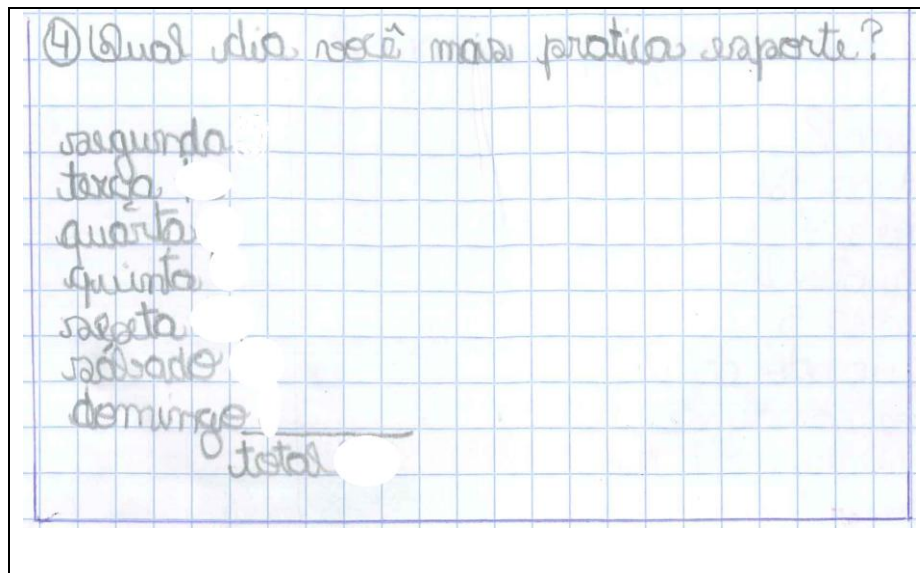 ④ Qual dia você mais pratica esporte?
segunda
terça
quarta
quinta
sexta
sábado
domingo
total